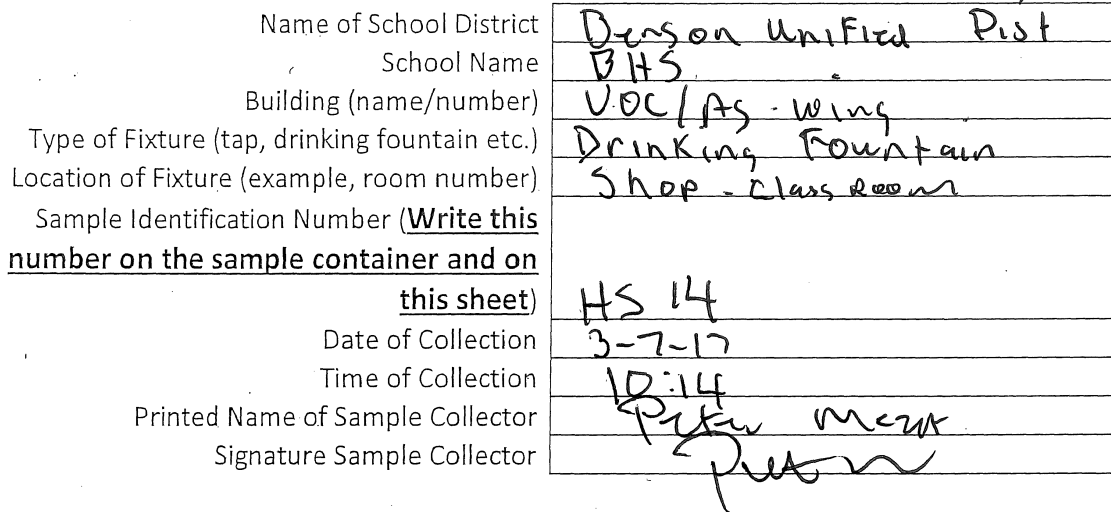 Name of School District Benson Unified Dist
School Name BHS
Building (name/number) VOC/Ag-wing
Type of Fixture (tap, drinking fountain etc.) Drinking Fountain
Location of Fixture (example, room number) Shop-Class Room
Sample Identification Number (Write this
number on the sample container and on
this sheet) HS 14
Date of Collection 3-7-17
Time of Collection 10:14
Printed Name of Sample Collector Peter
Signature Sample Collector